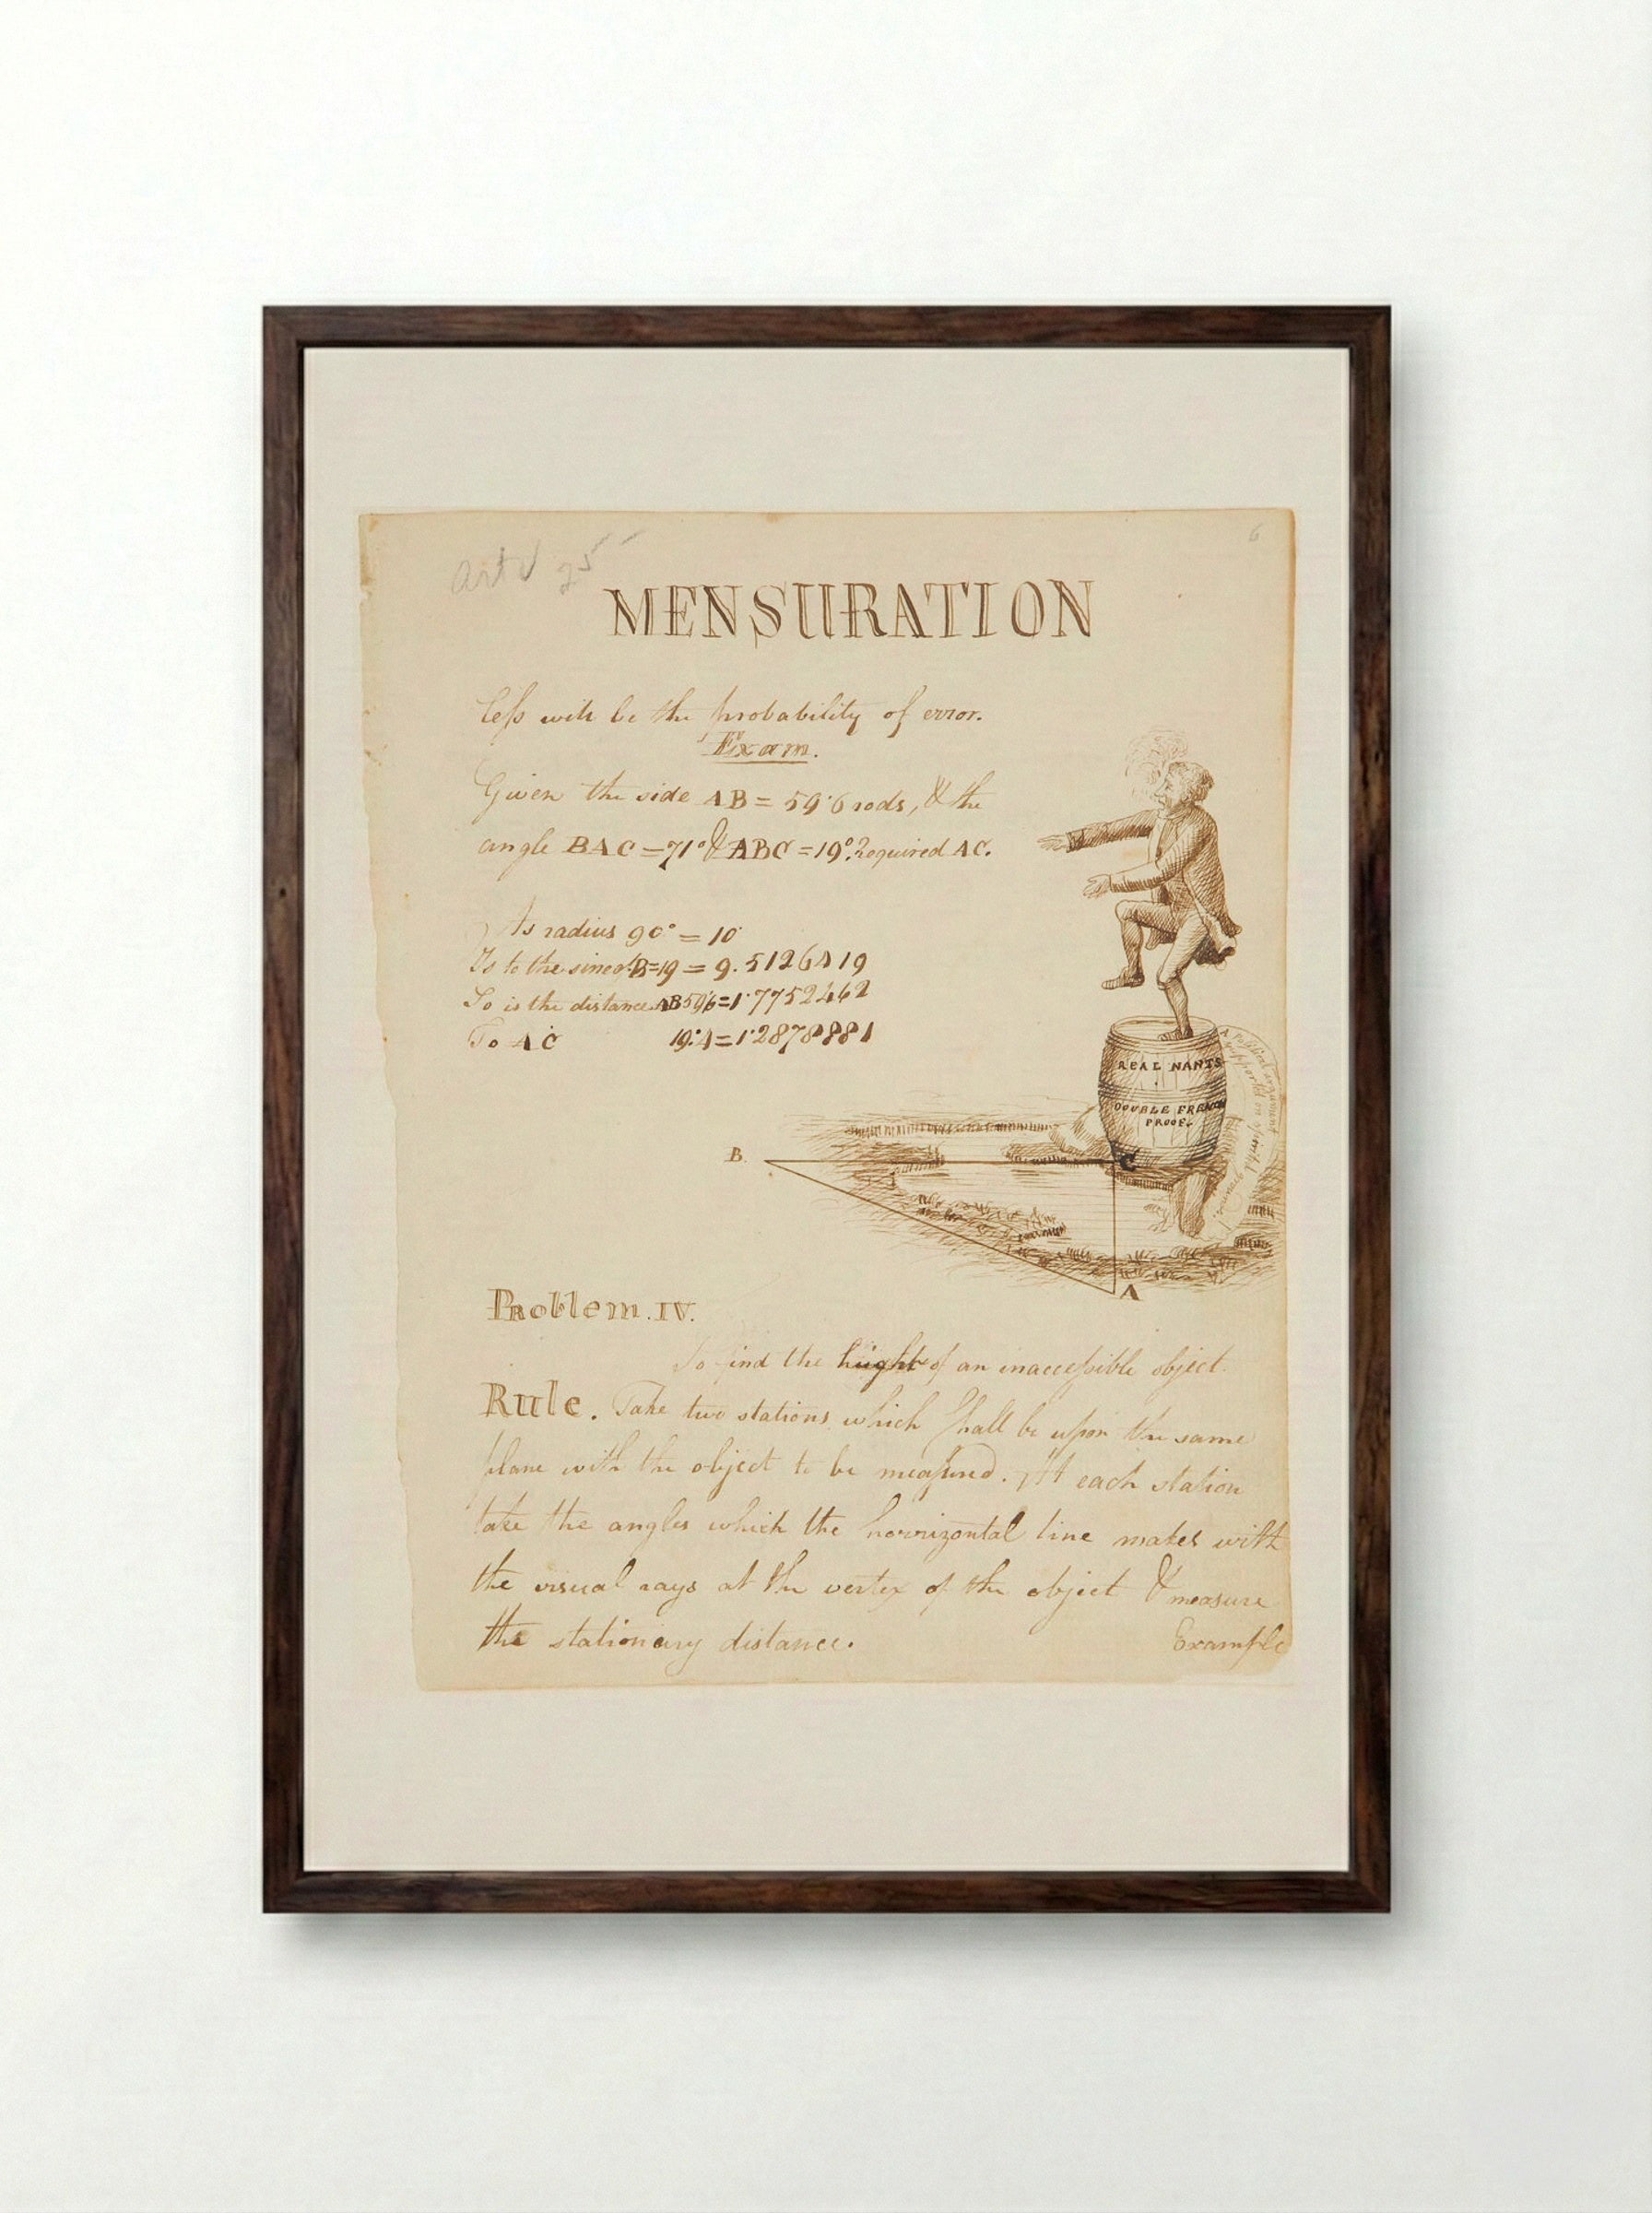 6
MENSURATION
leſs will be the probability of error.
Exam.
Given the side AB = 59·6 rods, & the
angle BAC = 71° & ABC = 19°. Required AC.
As radius 90° = 10
Is to the sine of B=19 = 9.5126419
So is the distance AB 59·6 = 1·7752462
To AC 19·4 = 1·2878881
REAL NANTS
DOUBLE FRENCH
PROOF.
A political argument
supported on
B
C
A
Problem. IV.
To find the hight of an inacceſsible object.
Rule. Take two stations which ſhall be upon the same
plane with the object to be meaſured. At each station
take the angles which the horrizontal line makes with
the visual rays at the vertex of the object & measure
the stationary distance.
Example